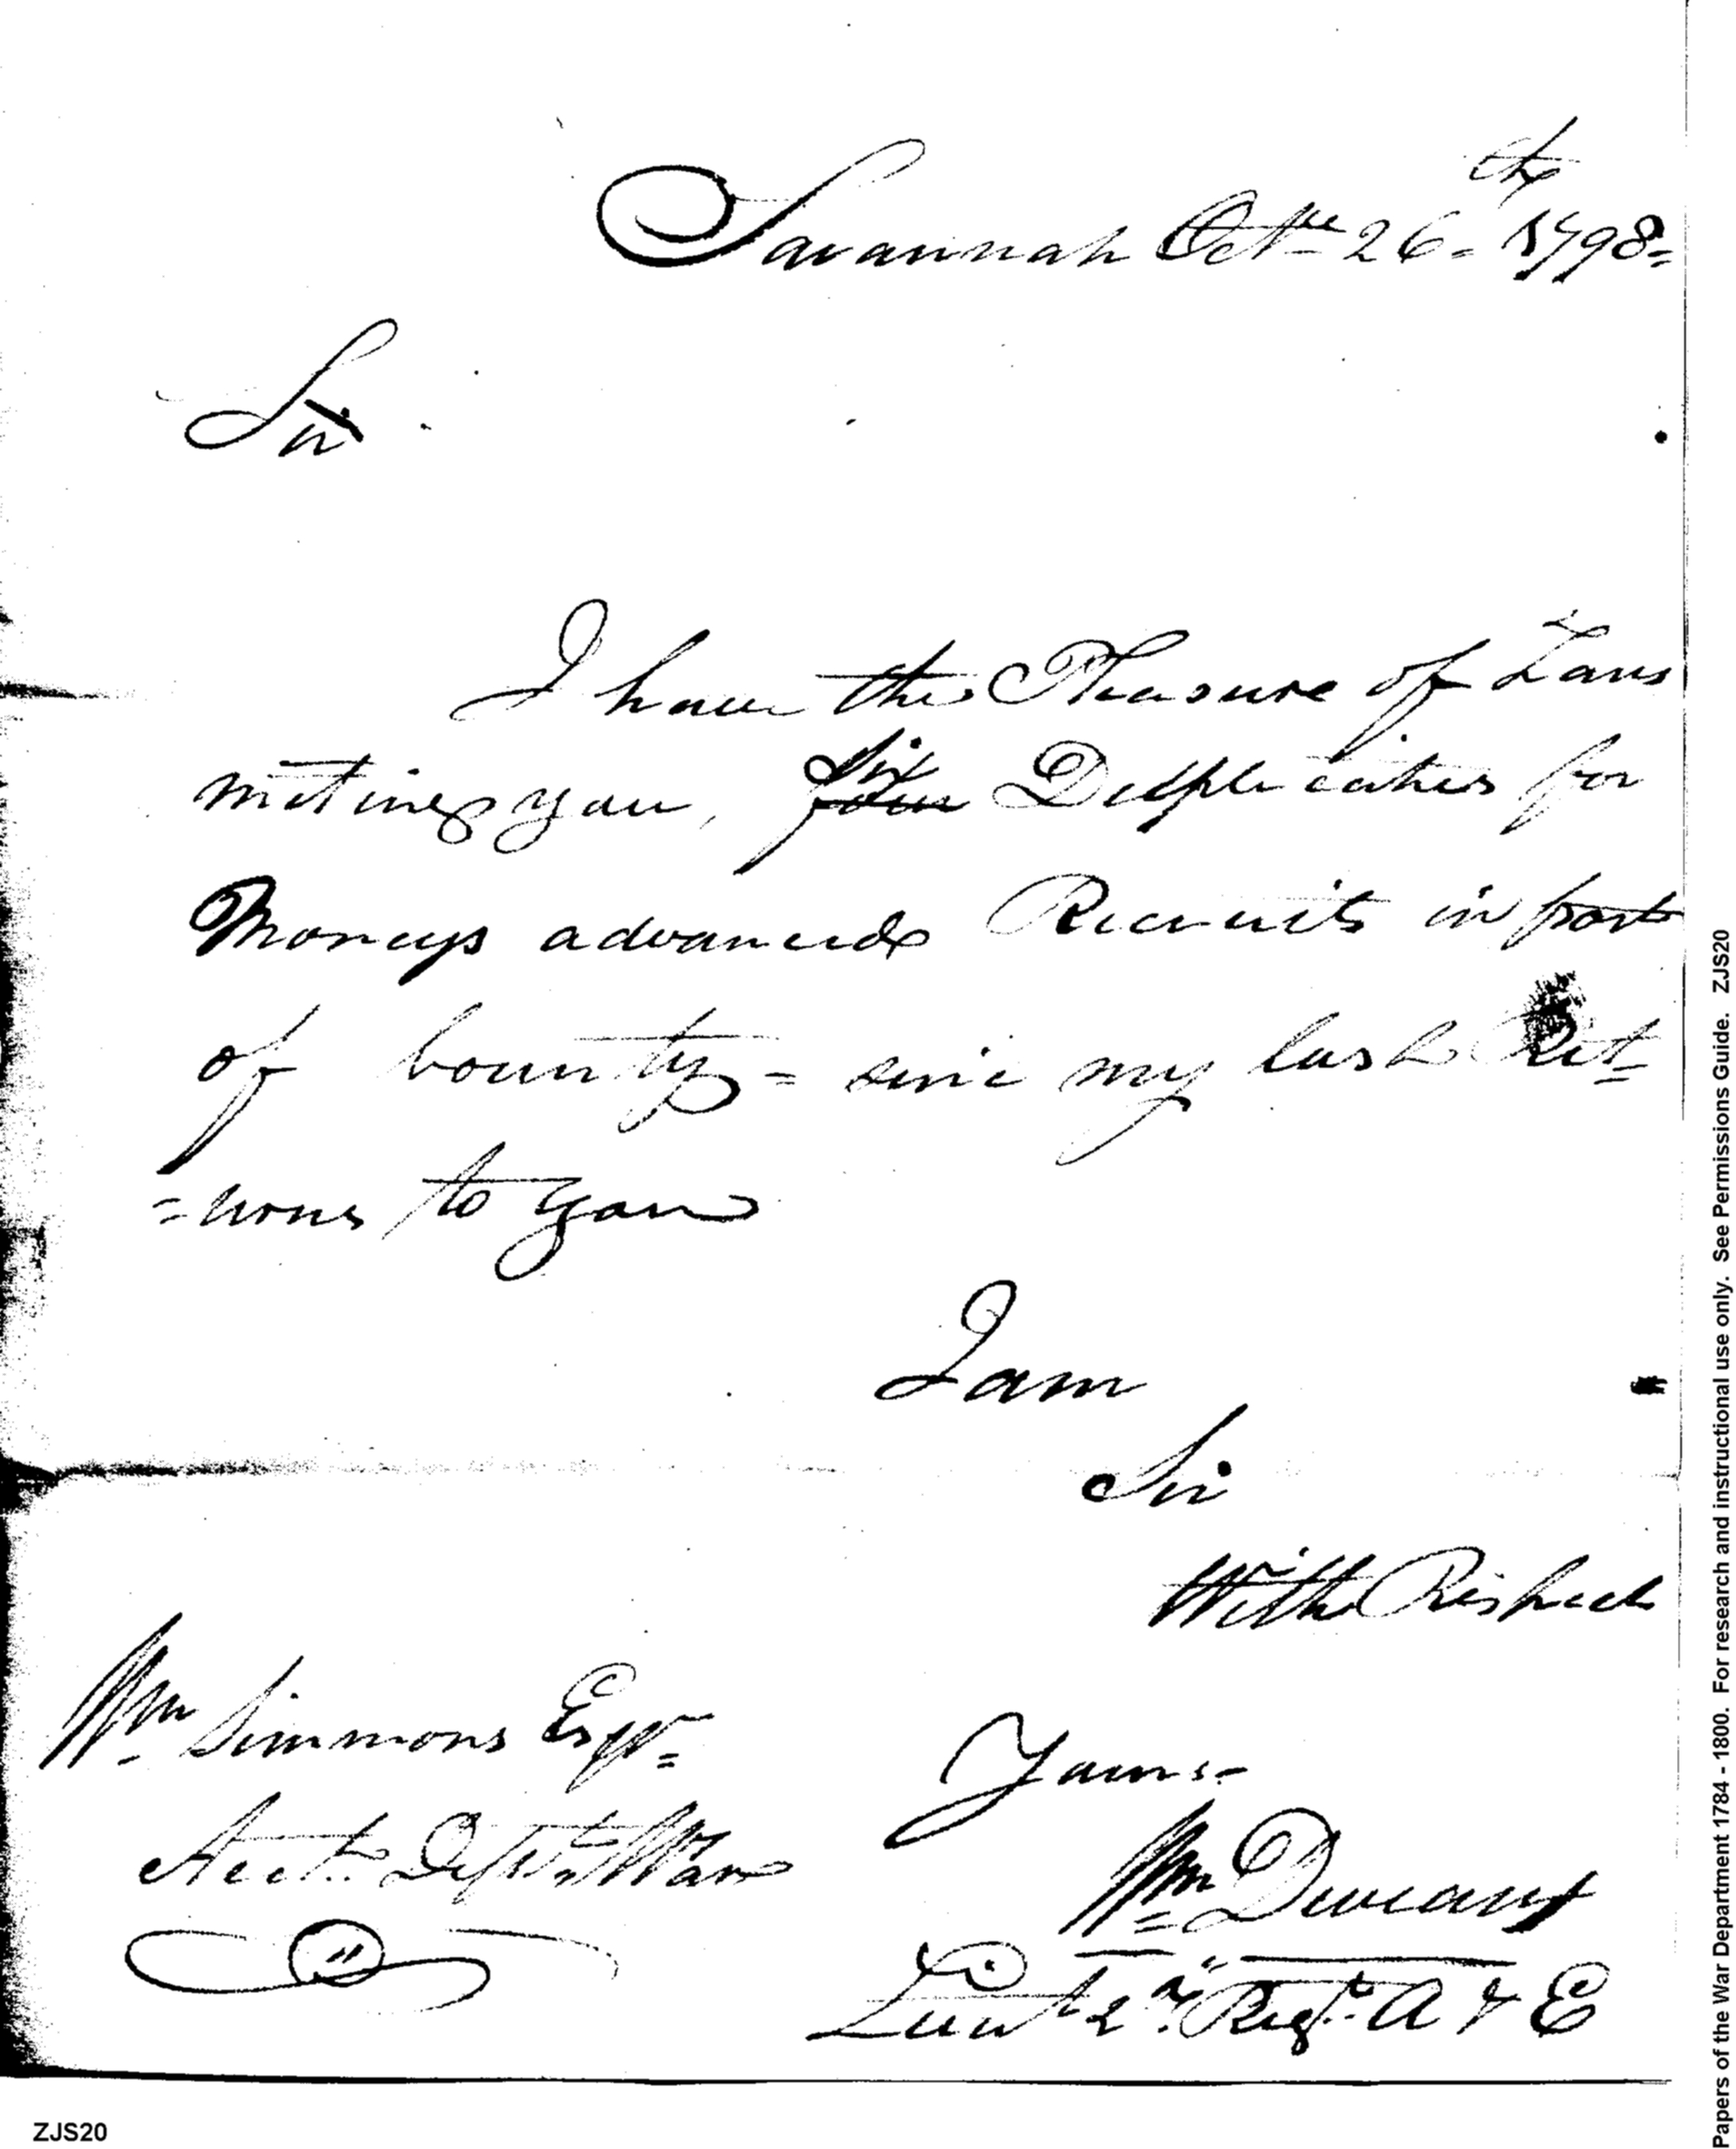 Savannah Octr 26th 1798
Sir
I have the Pleasure of Trans
mitting you, six four Dupplicates for
Moneys advanced Recruits in part
of bounty = sinc my last Ret=
=urns to you
I am
Sir
With Respect
Wm Simmons Esqr
Yours
Acct. Depmt War
Wm
Lieut 2nd Regt. A & E
ZJS20
Papers of the War Department 1784 - 1800. For research and instructional use only. See Permissions Guide. ZJS20